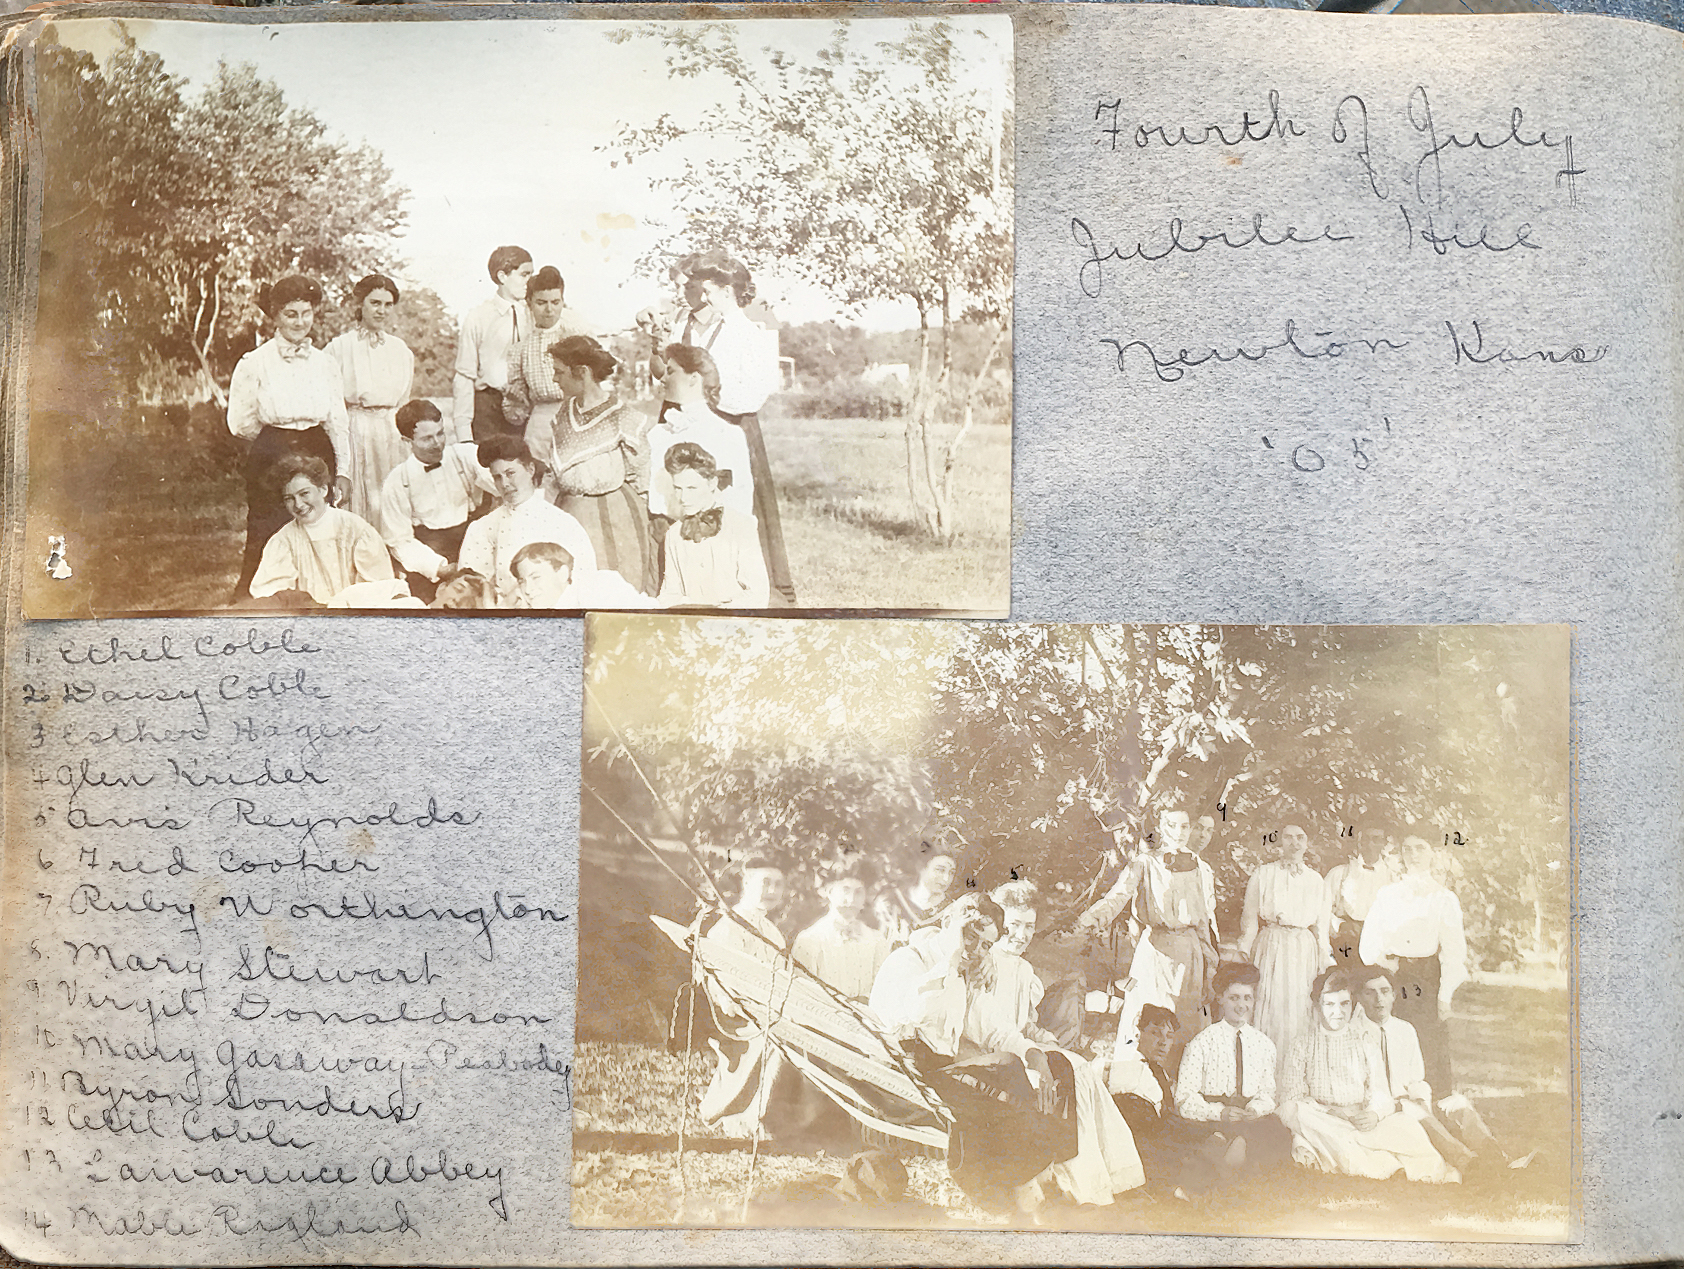 Fourth of July
Jubilee Hill
Newton Kans
'05'
1. Ethel Coble
2. Daisy Coble
3 Esther Hagen
4 Glen Krider
5 Avis Reynolds
6 Fred Cooper
7 Ruby Worthington
8. Mary Stewart
9 Virgil Donaldson
10 Mary Gassway Peabody
11 Byron Sonders
12 Cecil Coble
13 Lawarence Abbey
14 Mable Ragland
1
3
4
5
9
10
11
12
13